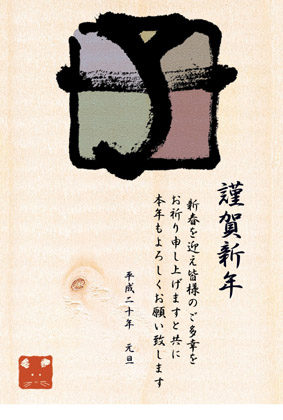 子
謹賀新年
新春を迎え皆様のご多幸を
お祈り申し上げますと共に
本年もよろしくお願い致します
平成二十年 元旦